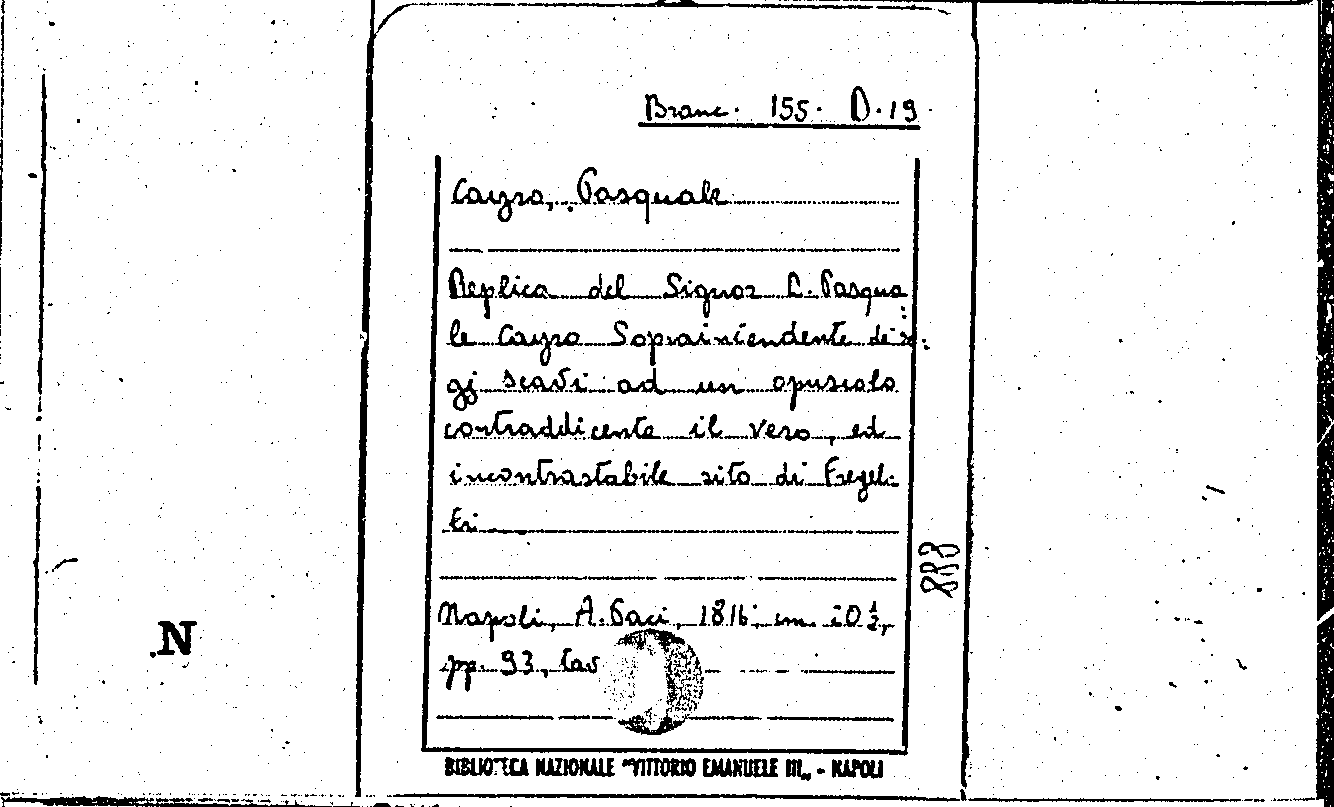 Branc. 155. D. 19
Cayro, Pasquale
Replica del Signor D. Pasqua
le Cayro Sopraintendente de' re:
gj scavi ad un opuscolo
contraddicente il vero, ed
incontrastabile sito di Fregel:
li
Napoli, A. Paci, 1816; cm. 20½,
pp. 93, tav
888
N
BIBLIOTECA NAZIONALE "VITTORIO EMANUELE III„ - NAPOLI